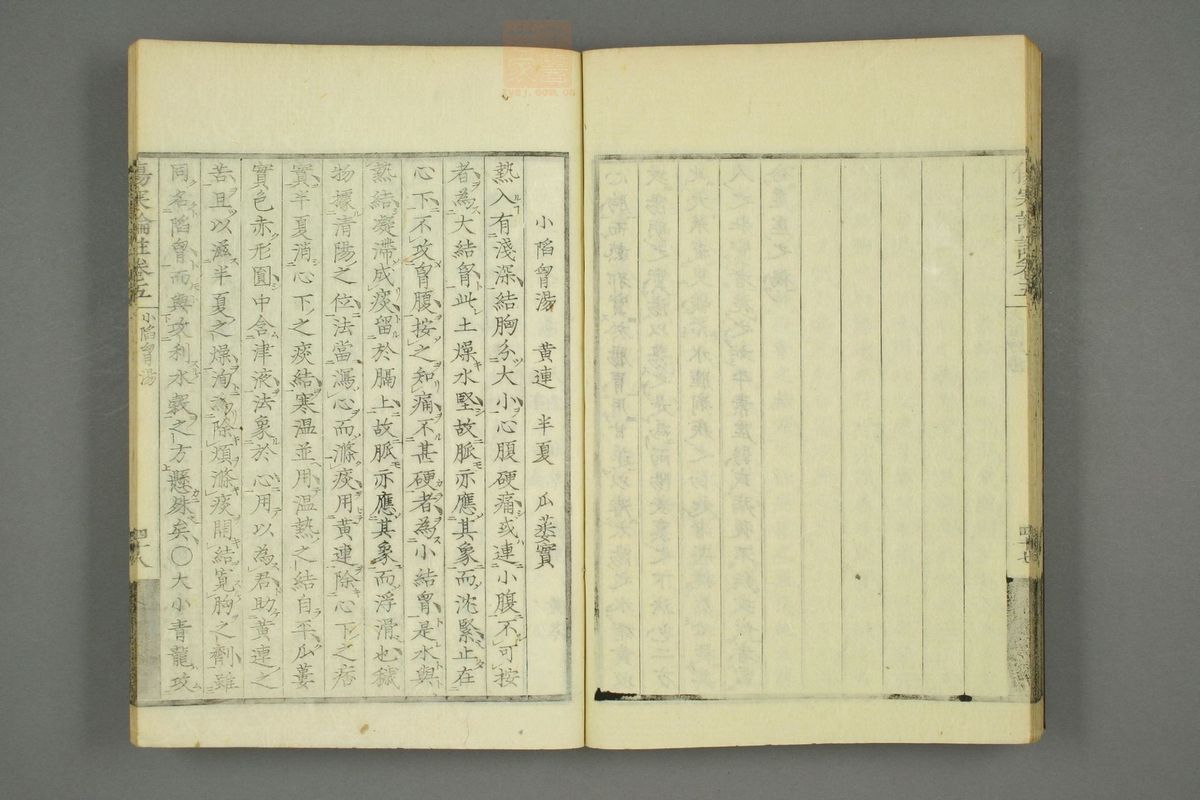 小陷胷湯 黃連 半夏 瓜蔞實
熱入有淺深結胸分大小心腹硬痛或連小腹不可按
者為大結胷此土燥水堅故脈亦應其象而沈緊止在
心下不攻胷腹按之知痛不甚硬者為小結胷是水與
熱結凝滯成痰留於膈上故脈亦應其象而浮滑也穢
物據清陽之位法當瀉心而滌痰用黃連除心下之痞
實半夏消心下之痰結寒温並用温熱之結自平瓜蔞
實色赤形圓中含津液法象於心用以為君助黃連之
苦且以滋半夏之燥洵為除煩滌痰開結寬胸之劑雖
同名陷胷而與攻利水穀之方懸殊矣〇大小青龍攻
傷寒論註卷五 小陷胷湯 四十八